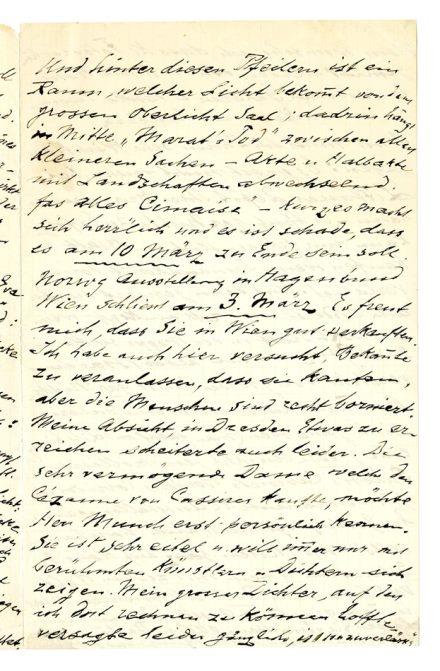 Und hinter diesen Pfeilern ist ein
Raum, welcher Licht bekomt von dem
grossen Oberlicht Saal; dadrin hängt
in Mitte „Marat's Tod" zwischen allen
kleineren Sachen – Akte u Halbakte
mit Landschaften abwechselnd.
fas alles Cimaise" – kurz es macht
sich herrlich und es ist schade, dass
es am 10 März zu Ende sein soll.
Norwg Ausstellung in Hagenbund
Wien schliesst am 3. März Es freut
mich, dass Sie in Wien gut verkauften.
Ich habe auch hier versucht, Bekante
zu veranlassen, dass sie kauften,
aber die Menschen sind recht borniert.
Meine Absicht, in Dresden Etwas zu er-
reichen scheiterte auch leider. Die
sehr vermögende Dame welche den
Cézanne von Cassirer kaufte, möchte
Herr Munch erst persönlich kennen.
Sie ist sehr eitel u. will imer nur mit
berühmten Künstlern u Dichtern sich
zeigen. Mein grosser Dichter, auf den
ich dort rechnen zu können hoffte,
versagte leider gänzlich, ist unzuverlässig